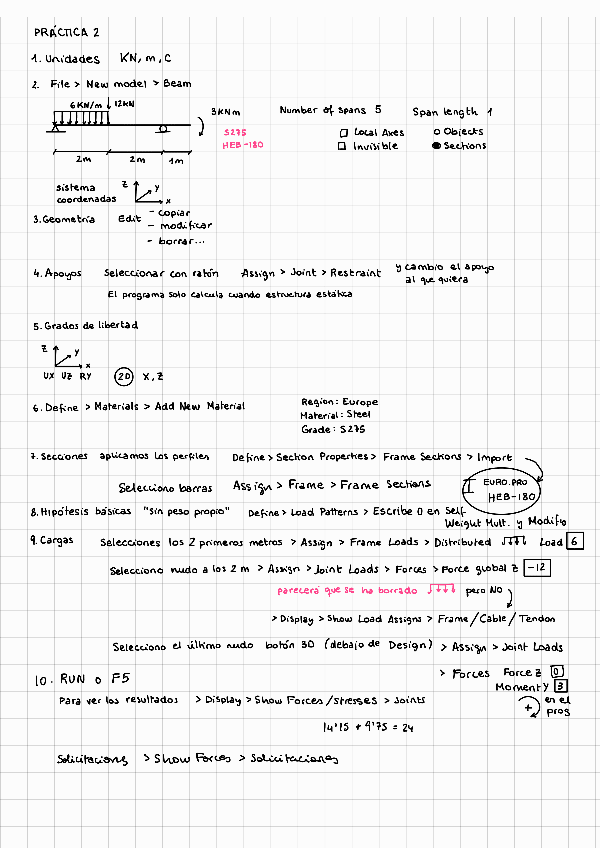 PRÁCTICA 2
1. Unidades KN, m, C
2. File > New model > Beam
6 KN/m 12KN 3KNm Number of spans 5 Span length 1
S275 Local Axes Objects
HEB-180 Invisible Sections
2m 2m 1m
sistema coordenadas z y x
3. Geometría Edit - copiar
- modificar
- borrar...
4. Apoyos Seleccionar con ratón Assign > Joint > Restraint y cambio el apoyo
al que quiera
El programa solo calcula cuando estructura estática
5. Grados de libertad
z y x
UX UZ RY 2D X, Z
6. Define > Materials > Add New Material Region: Europe
Material: Steel
Grade: S275
7. Secciones aplicamos los perfiles Define > Section Properties > Frame Sections > Import
Selecciono barras Assign > Frame > Frame Sections EURO.PRO
HEB-180
8. Hipótesis básicas "sin peso propio" Define > Load Patterns > Escribe 0 en Self
Weight Mult. y Modify
9. Cargas Selecciones los 2 primeros metros > Assign > Frame Loads > Distributed Load 6
Selecciono nudo a los 2 m > Assign > Joint Loads > Forces > Force global Z -12
parecerá que se ha borrado pero NO
> Display > Show Load Assigns > Frame/Cable/Tendon
Selecciono el último nudo botón 3D (debajo de Design) > Assign > Joint Loads
> Forces Force Z 0
Moment Y 3
10. RUN o F5
+ en el
prog
Para ver los resultados > Display > Show Forces/Stresses > Joints
14'15 + 9'75 = 24
Solicitaciones > Show Forces > Solicitaciones